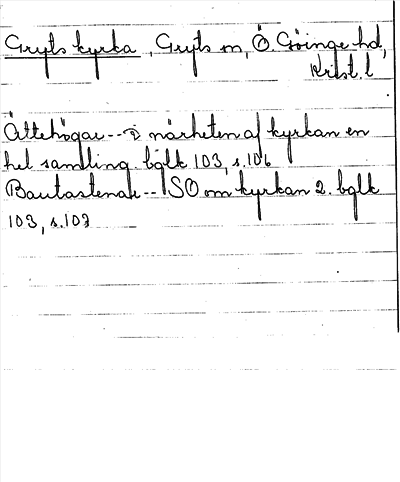 Gryts kyrka, Gryts sn, Ö. Göinge hd,
Krist. l
Ättehögar -- i närheten af kyrkan en
hel samling. bglk 103, s. 106
Bautastenar -- SO om kyrkan 2. bglk
103, s. 107